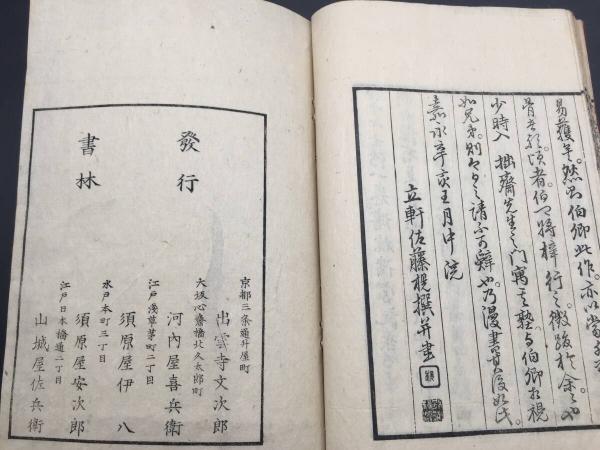 易獲耳。然則伯卿此作。亦以嘗
頃者。伯卿將梓行之。徵跋於余。余也
少時入 拙齋先生之門寓其塾。與伯卿相視
如兄弟。則今日之請不可辭也。乃漫書其後如此。
嘉永辛亥王月中浣
立軒佐藤 撰并書
發行
書林
京都三条通升屋町
出雲寺文次郎
大坂心齋橋北久太郎町
河内屋喜兵衛
江戸浅草茅町二丁目
須原屋伊八
水戸本町三丁目
須原屋安次郎
江戸日本橋通二丁目
山城屋佐兵衛